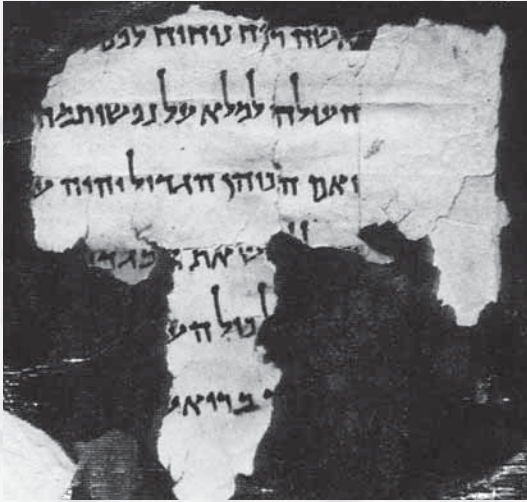 אשה ריח ניחוח לפנ
העולה למלא על נפשותמה
ואם הכוהן הגדול יהיה ע
את
כול הע
בריא